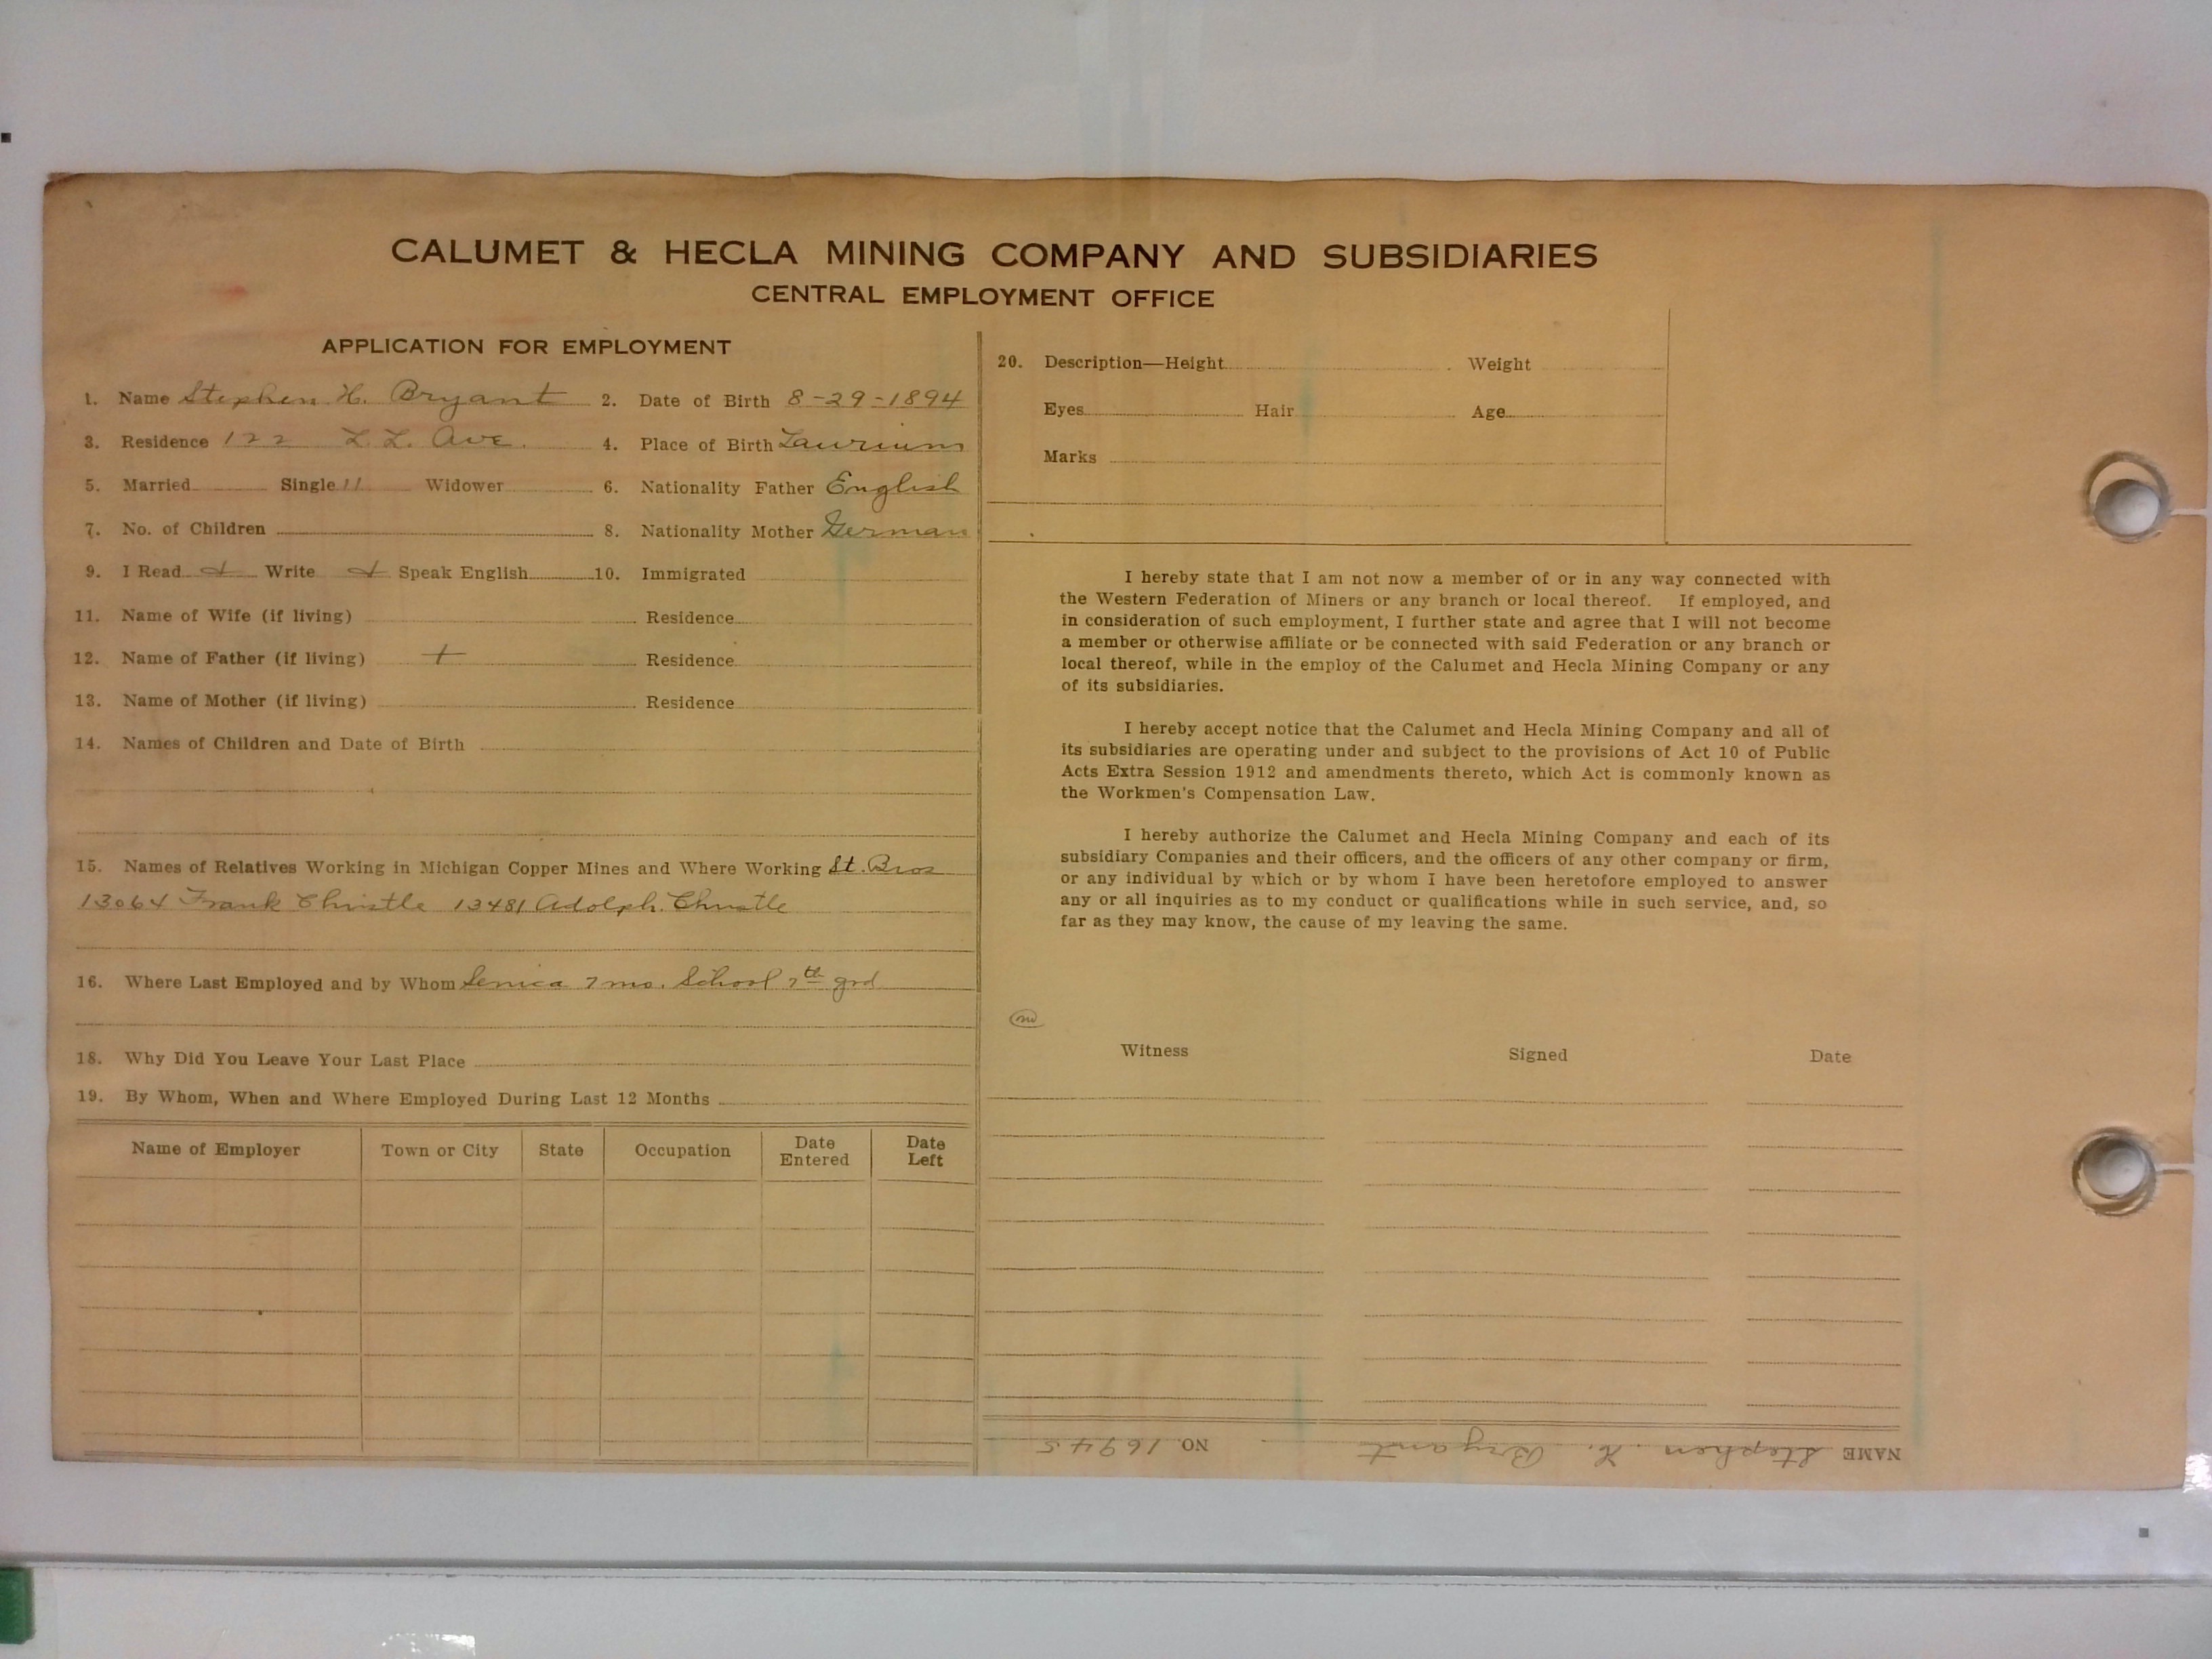 CALUMET & HECLA MINING COMPANY AND SUBSIDIARIES
CENTRAL EMPLOYMENT OFFICE
APPLICATION FOR EMPLOYMENT
1. Name Stephen H. Bryant 2. Date of Birth 8-29-1894
3. Residence 122 L. L. Ave. 4. Place of Birth Laurium
5. Married Single 11 Widower 6. Nationality Father English
7. No. of Children 8. Nationality Mother German
9. I Read Write Speak English 10. Immigrated
11. Name of Wife (if living) Residence
12. Name of Father (if living) + Residence
13. Name of Mother (if living) Residence
14. Names of Children and Date of Birth
15. Names of Relatives Working in Michigan Copper Mines and Where Working St. Bros
13064 Frank Christle 13481 Adolph. Christle
16. Where Last Employed and by Whom Senica 7 mo. School 7th grd
18. Why Did You Leave Your Last Place
19. By Whom, When and Where Employed During Last 12 Months
Name of Employer Town or City State Occupation Date Entered Date Left
20. Description—Height Weight
Eyes Hair Age
Marks
I hereby state that I am not now a member of or in any way connected with
the Western Federation of Miners or any branch or local thereof. If employed, and
in consideration of such employment, I further state and agree that I will not become
a member or otherwise affiliate or be connected with said Federation or any branch or
local thereof, while in the employ of the Calumet and Hecla Mining Company or any
of its subsidiaries.
I hereby accept notice that the Calumet and Hecla Mining Company and all of
its subsidiaries are operating under and subject to the provisions of Act 10 of Public
Acts Extra Session 1912 and amendments thereto, which Act is commonly known as
the Workmen's Compensation Law.
I hereby authorize the Calumet and Hecla Mining Company and each of its
subsidiary Companies and their officers, and the officers of any other company or firm,
or any individual by which or by whom I have been heretofore employed to answer
any or all inquiries as to my conduct or qualifications while in such service, and, so
far as they may know, the cause of my leaving the same.
Witness Signed Date
NAME Stephen. H. Bryant NO. 16945